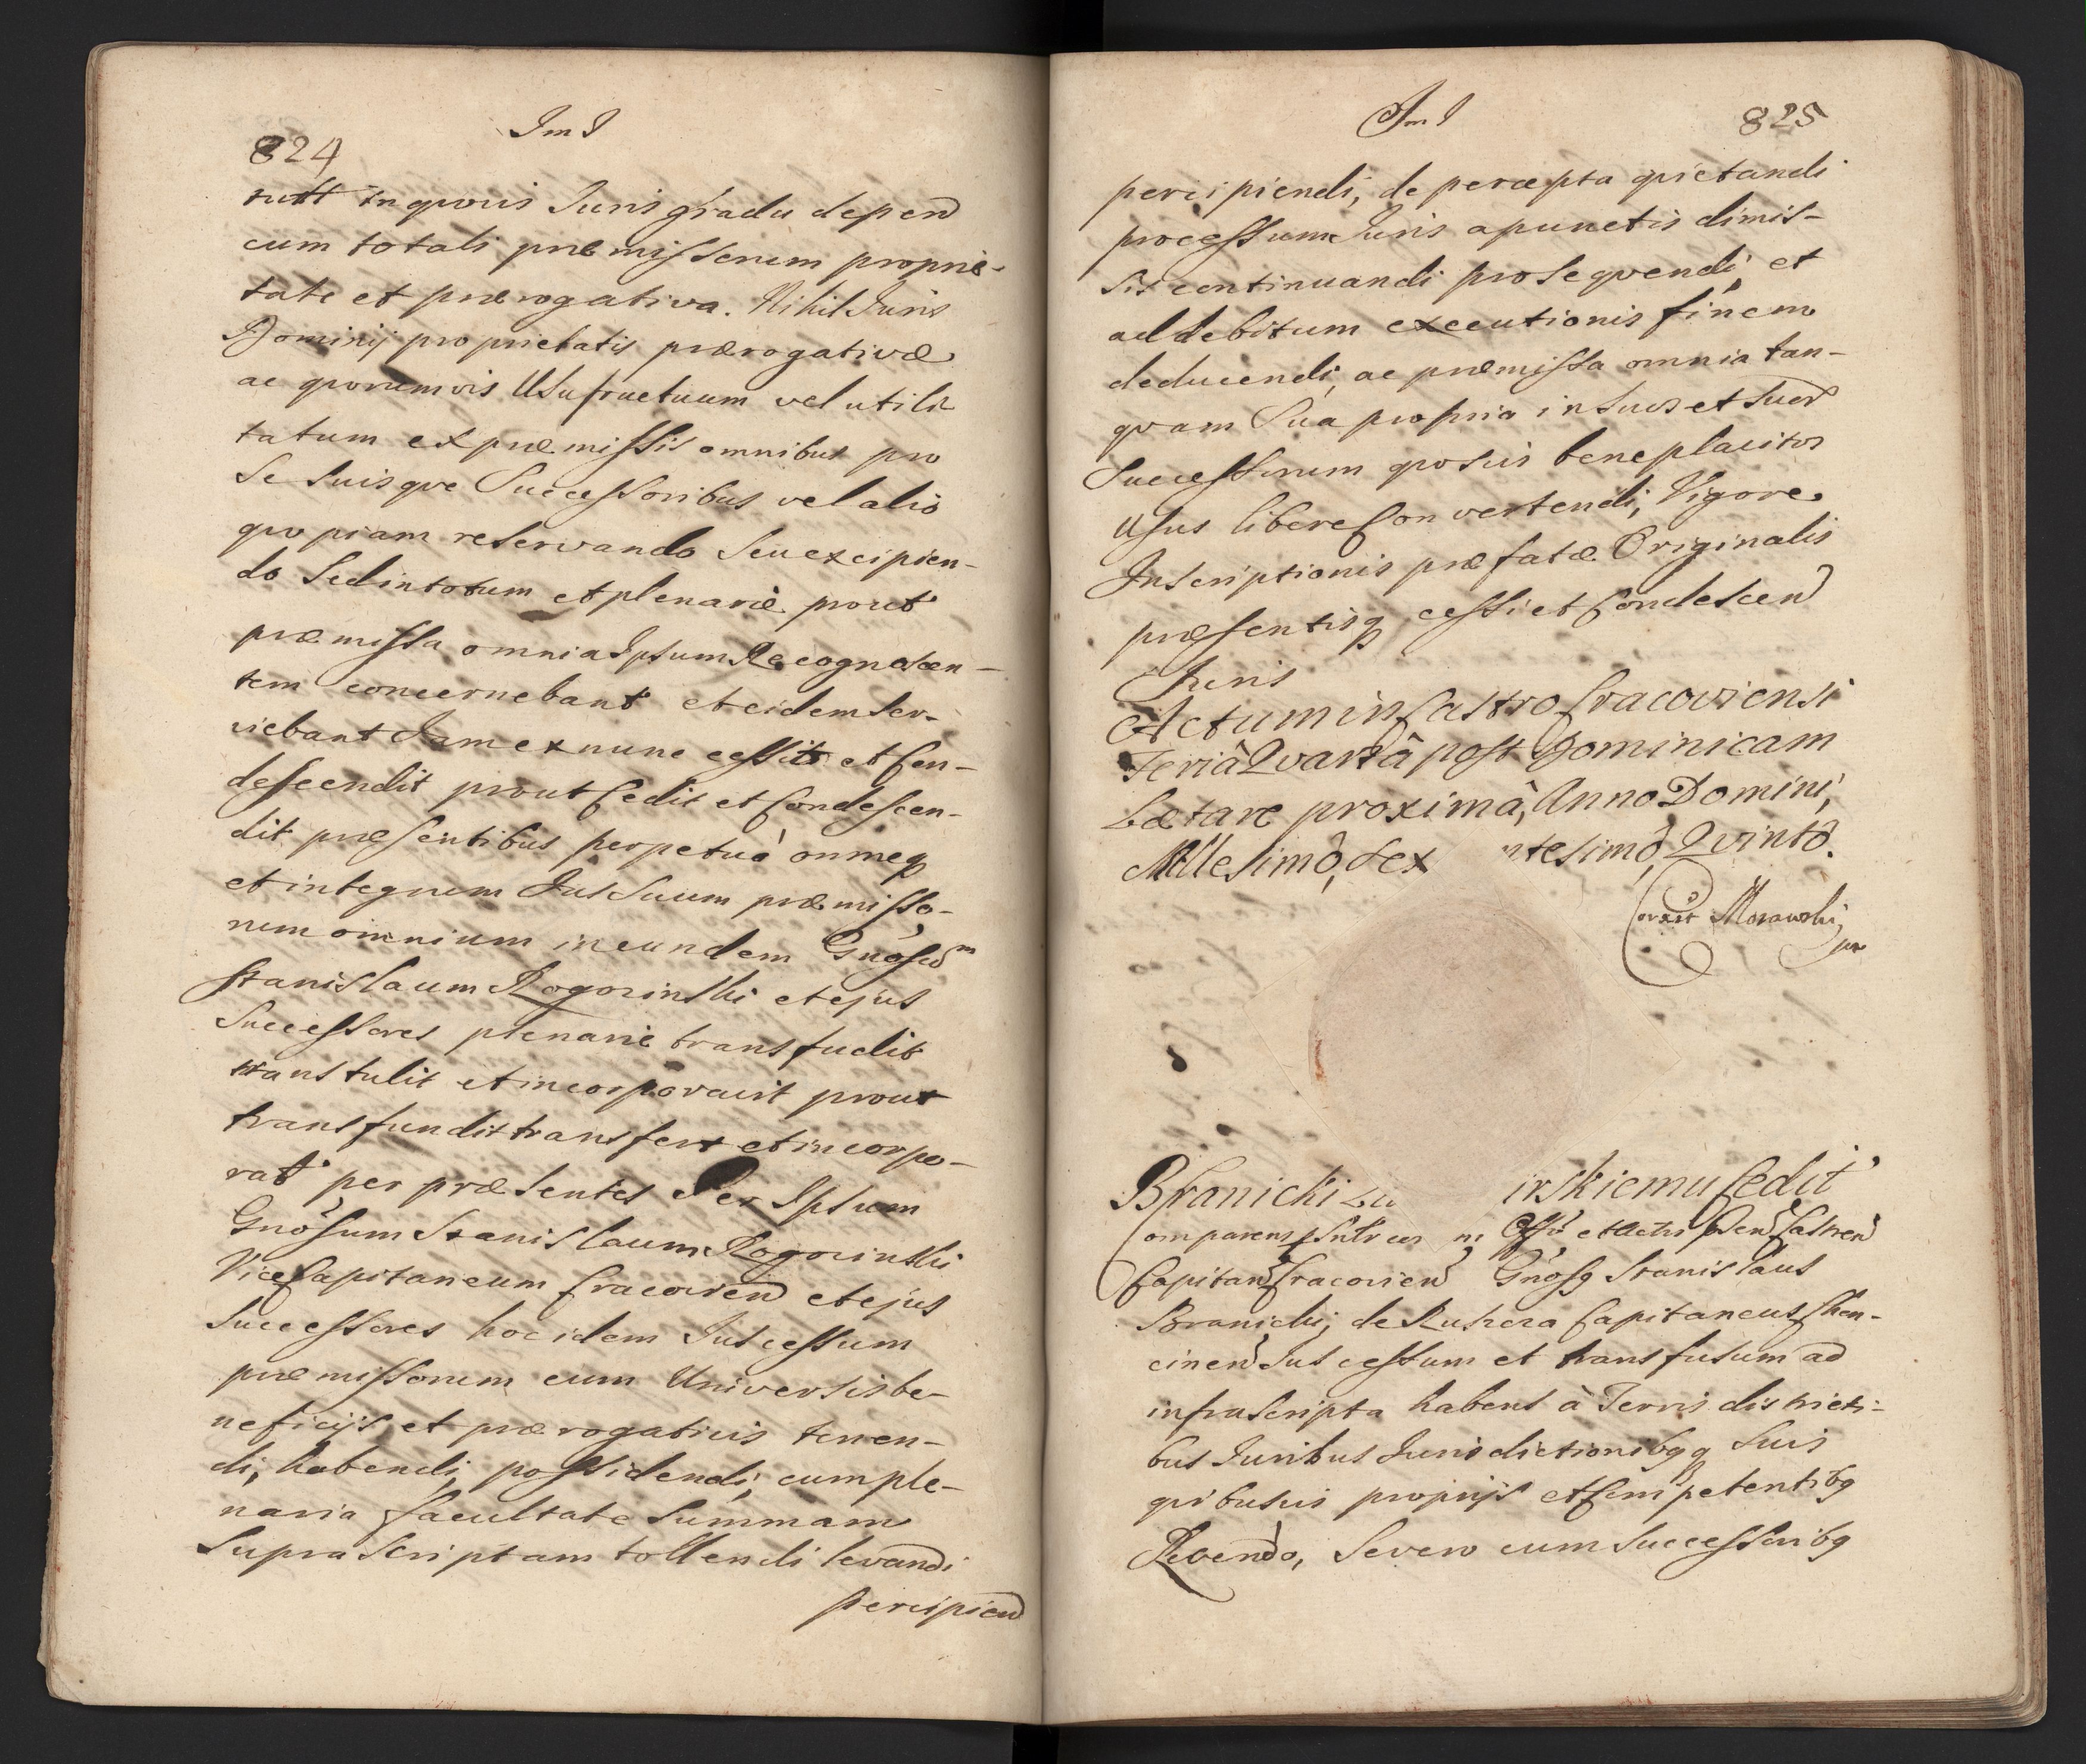 824
ImI
rutt in quovis Juris gradu depend
cum totali præmissorum proprie-
tate et prærogativa. Nihil Juris
Dominij proprietatis prærogativæ
ac quorumvis Usufructuum vel utili
tatum ex præmissis omnibus pro
se suisque Successoribus vel alio
quopiam reservando seu excipien-
do sed in totum et plenariè prout
præmissa omnia Ipsum Recognoscen-
tem concernebant et eidem ser-
viebant Jam ex nunc cessit et Con-
descendit prout Cedit et Condescen-
dit præsentibus perpetuò omneq
et integrum Jus Suum præmisso-
rum omnium in eundem Gnosum
Stanislaum Rogozinski et ejus
Successores plenariè transfudit
transtulit et incorporavit prout
transfundit transfert et incorpo-
rat per præsentes Per Ipsum
Gnosum Stanislaum Rogozinski
ViceCapitaneum Cracovien et ejus
Successores hoc idem Jus cessum
præmissorum cum Universis be-
neficijs et prærogativis tenen-
di, habendi, possidendi, cum ple-
naria facultate summam
supra scriptam tollendi levandi
percipiend
ImI
825
percipiendi, de percepta quietandi
processum Juris a punctis dimis-
sis continuandi prosequendi, et
ad debitum executionis finem
deducendi, ac præmissa omnia tan-
quam Sua propria in Suos et Suor
Successorum quosvis beneplacitos
usus libere Convertendi, Vigore
Inscriptionis præfatæ Originalis
præsentisq cessi et Condescend
Juris
Actum in Castro Cracoviensi
Feriâ Quartâ post Dominicam
Lætare proximâ, Anno Domini,
Millesimô, Sex ntesimô, Quintô.
Corexit Morawski
Branicki Lu irskiemu Cedit
Comparens Offô et Actis Castren
Capitan Cracovien Gnosq Stanislaus
Branicki, de Ruscza Capitaneus Chen-
cinen Jus cessum et transfusum ad
infrascripta habens à Terris districti-
bus Juribus Jurisdictionibqq Suis
quibusvis proprijs et Competentibq
Recendo, Se vero cum Successoribq